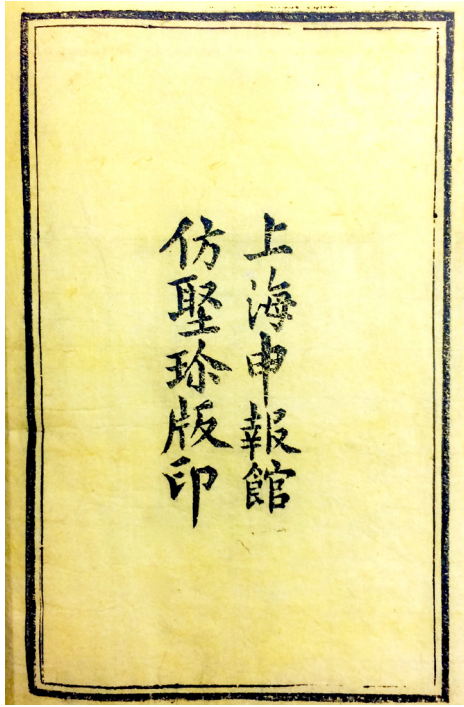 上海申報館
仿聚珍版印